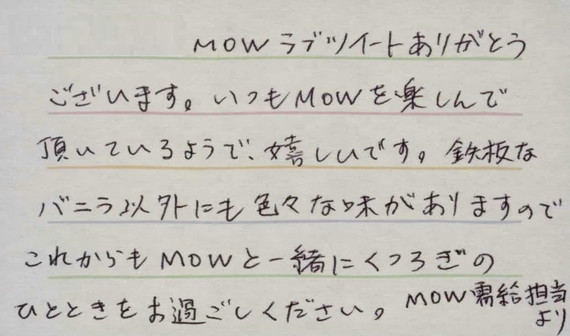 MOWラブツイートありがとう
ございます。いつもMOWを楽しんで
頂いているようで、嬉しいです。鉄板な
バニラ以外にも色々な味がありますので
これからもMOWと一緒にくつろぎの
ひとときをお過ごしください。MOW需給担当
より